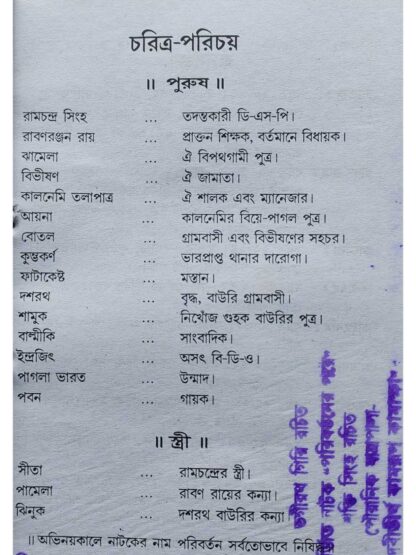 চরিত্র-পরিচয়
॥ পুরুষ ॥
রামচন্দ্র সিংহ ... তদন্তকারী ডি-এস-পি।
রাবণরঞ্জন রায় ... প্রাক্তন শিক্ষক, বর্তমানে বিধায়ক।
ঝামেলা ... ঐ বিপথগামী পুত্র।
বিভীষণ ... ঐ জামাতা।
কালনেমি তলাপাত্র ... ঐ শালক এবং ম্যানেজার।
আয়না ... কালনেমির বিয়ে-পাগল পুত্র।
বোতল ... গ্রামবাসী এবং বিভীষণের সহচর।
কুম্ভকর্ণ ... ভারপ্রাপ্ত থানার দারোগা।
ফাটাকেষ্ট ... মস্তান।
দশরথ ... বৃদ্ধ, বাউরি গ্রামবাসী।
শামুক ... নিখোঁজ গুহক বাউরির পুত্র।
বাল্মীকি ... সাংবাদিক।
ইন্দ্রজিৎ ... অসৎ বি-ডি-ও।
পাগলা ভারত ... উন্মাদ।
পবন ... গায়ক।
॥ স্ত্রী ॥
সীতা ... রামচন্দ্রের স্ত্রী।
পামেলা ... রাবণ রায়ের কন্যা।
ঝিনুক ... দশরথ বাউরির কন্যা।
॥ অভিনয়কালে নাটকের নাম পরিবর্তন সর্বতোভাবে নিষিদ্ধ
রচিত
নাটক
শক্তি সিংহ রচিত
পৌরাণিক